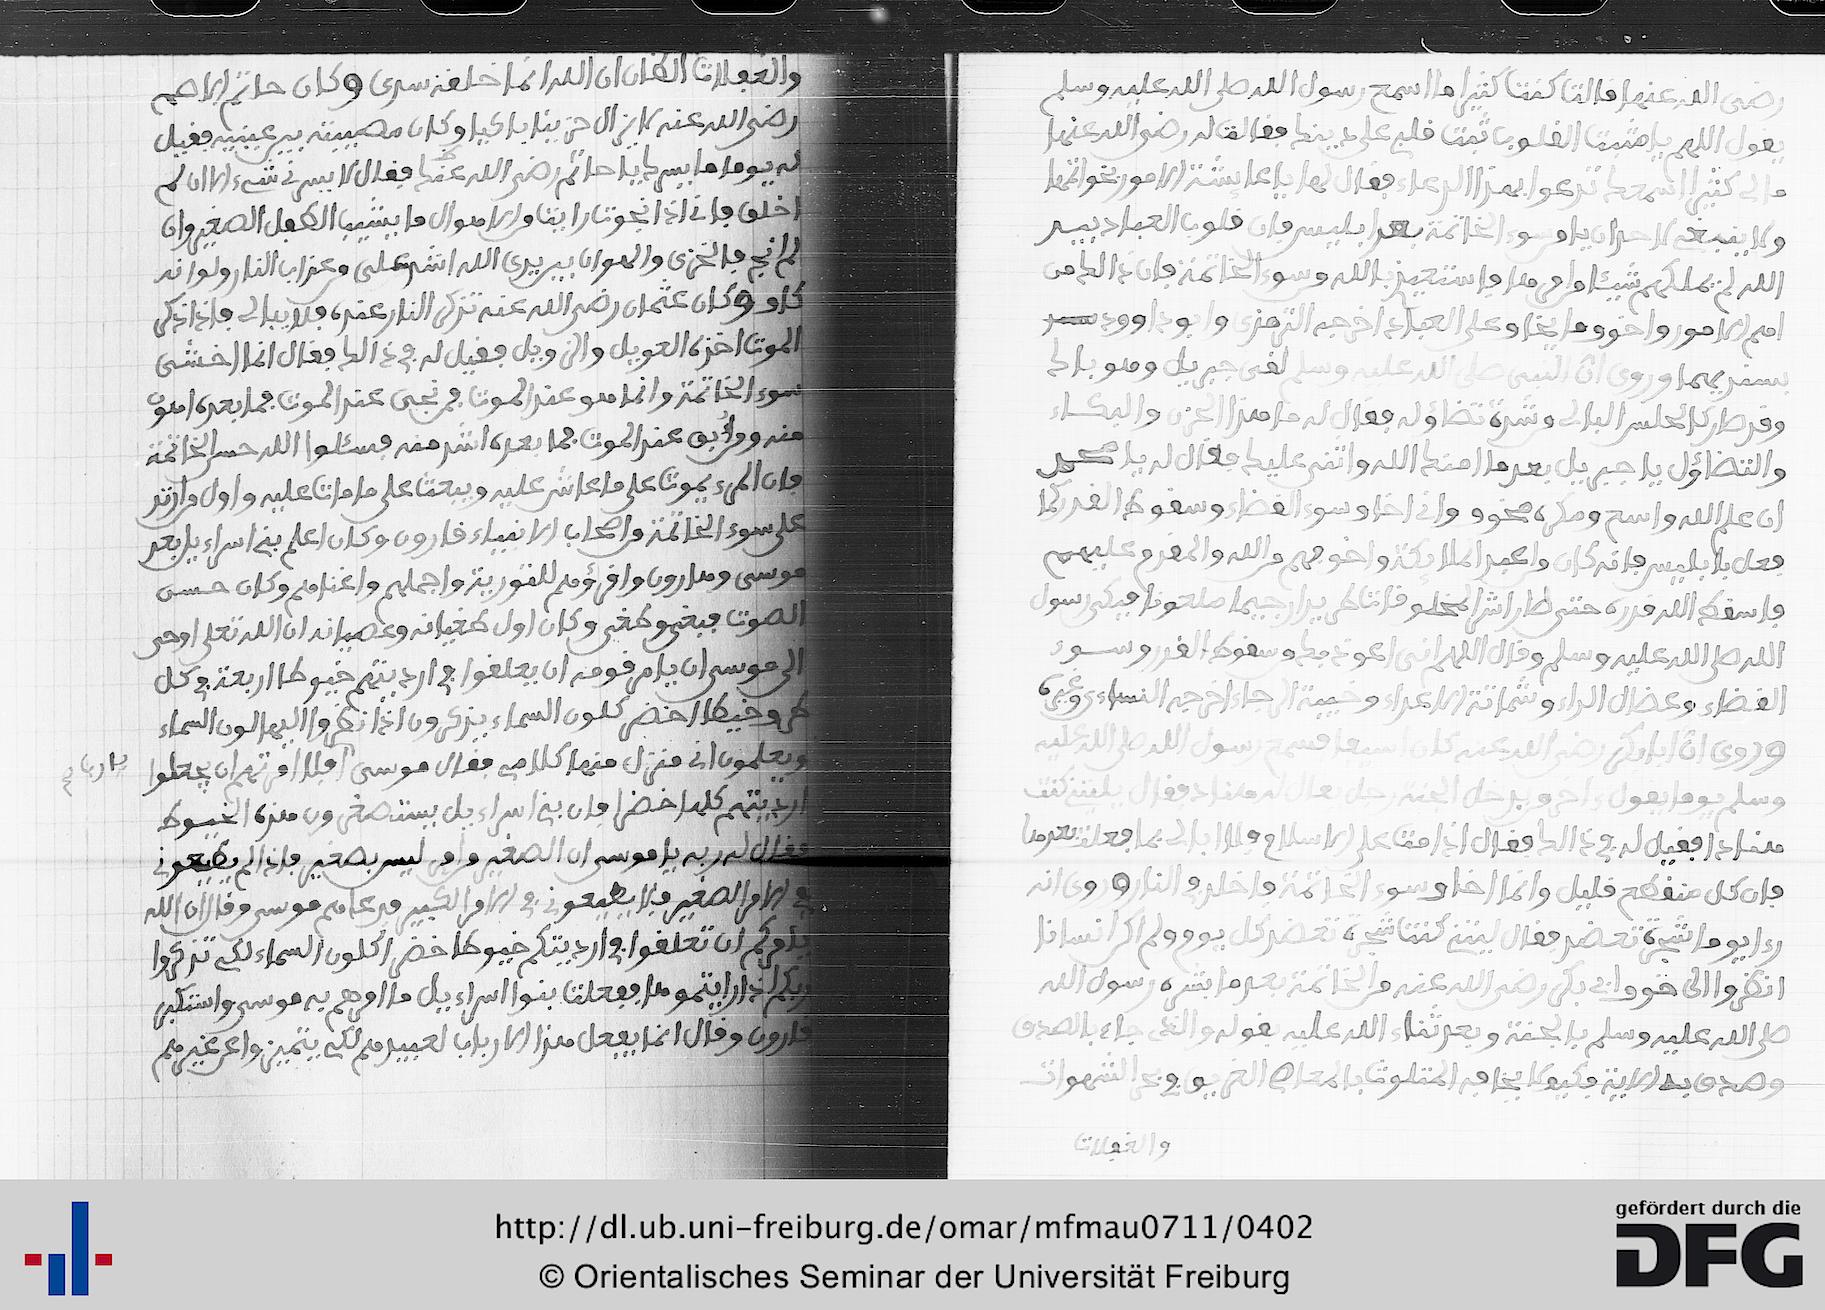 رضى الله عنها قالت كنت كثيرا ما اسمع رسول الله صلى الله عليه وسلم
يقول اللهم يا مثبت القلوب ثبت قلبي على دينك فقالت له رضى الله عنها
ما لي كثيرا اسمعك تدعوا بهذا الدعاء فقال لها يا عايشة الامور بخواتمها
ولا ينبغي لاحد ان يامن سوء الخاتمة بعد ابليس فان قلوب العباد بيد
الله لم يملكهم شيئا من هذا فاستعيذ بالله من سوء الخاتمة فان ذالك من
اهم الامور واخوف ما يخاف على العباد اخرجه الترمذي وابو داوود
بسنديهما وروى ان النبي صلى الله عليه وسلم لقى جبريل وهو باك
وقد صار كالحلس البالي وشدة تضاؤله فقال له ما هذا الحزن والبكاء
والتضاؤل يا جبريل بعد ما امنك الله واثنى عليك فقال له يا محمد
ان علم الله واسع ومكره مخوف واني اخاف سوء القضاء وسقوط القدر كما
فعل بابليس فانه كان من اعبد الملايكة واخوفهم من الله والمقدم عليهم
فاسقط الله قدره حتى صار اشر المخلوقات طريدا رجيما ملعونا فبكى رسول
الله صلى الله عليه وسلم وقال اللهم اني اعوذ بك من سقوط القدر وسوء
القضاء وعضال الداء وشماتة الاعداء وخيبة الرجاء اخرجه النساءي وغيره
وروى ان ابا بكر رضى الله عنه كان
وسلم يوما يقول اخر من يدخل الجنة رجل يقال له هناد فقال يليتني كنت
هنادا فقيل له في ذالك فقال اذا مت على الاسلام فلا ابالي بما فعلت بعدها
فان كل منقطع قليل وانما اخاف سوء الخاتمة فاخلد في النار وروى انه
رءا يوما شجرة تعضد فقال ليتني كنت شجرة تعضد كل يوم ولم اك انسانا
انظروا الى خوف ابي بكر رضى الله عنه من الخاتمة بعد ما بشره رسول الله
صلى الله عليه وسلم بالجنة وبعد ثناء الله عليه بقوله والذي جاء بالصدق
وصدق به الاية فكيف لا يخافه المتلوث بالمعاصي الغريق في بحر الشهوات
والغفلات
والغفلات الظان ان الله انما خلقه سدى وكان حاتم الاصم
رضى الله عنه لا يزال حزينا باكيا وكان مصيبته بين عينيه فقيل
له يوما ما يسرك يا حاتم رضى الله عنك فقال لا يسرني شيء الا ان لم
اخلق فاني اذا نجوت رايت من الاهوال ما يشيب الطفل الصغير وان
لم انج فالخزي والهوان بين يدي الله اشد علي من عذاب النار ولو انه
كاف وكان عثمان رضى الله عنه تذكر النار عنده فلا يبالي فاذا ذكر
الموت اخذه العويل والزويل فقيل له في ذالك فقال انما اخشى
سوء الخاتمة وانما هو عند الموت فمن نجى عند الموت فما بعده اهون
منه ومن اوبق عند الموت فما بعده اشد منه فسئلوا الله حسن الخاتمة
فان المرء يموت على ما عاش عليه ويبعث على ما مات عليه واول من ارتد
على سوء الخاتمة من اصحاب الانبياء قارون وكان اعلم بني اسراءيل بعد
موسى وهارون واقرؤهم للتورية واجملهم واغناهم وكان حسن
الصوت فبغى وطغى وكان اول طغيانه وعصيانه ان الله تعلى اوحى
الى موسى ان يامر قومه ان يعلقوا في ارديتهم خيوطا اربعة في كل
طرف خيطا اخضر كلون السماء يذكرون اذا نظروا اليها لون السماء
ويعلمون اني منزل منها كلامي فقال موسى افلا امرتهم ان يجعلوا
يا رب
ارديتهم كلها خضرا فان بني اسراءيل يستصغرون هذه الخيوط
فقال له ربه يا موسى ان الصغير من امري ليس بصغير فاذا لم يطيعوني
في الامر الصغير فلا يطيعوني في الامر الكبير فدعاهم موسى وقال ان الله
يامركم ان تعلقوا في ارديتكم خيوطا خضرا كلون السماء لكي تذكروا
ربكم اذا رايتموها ففعلت بنوا اسراءيل ما امرهم به موسى واستكبر
قارون وقال انما يفعل هذا الارباب لعبيدهم لكي يتميزوا عن غيرهم
http://dl.ub.uni-freiburg.de/omar/mfmau0711/0402
© Orientalisches Seminar der Universität Freiburg
gefördert durch die
DFG